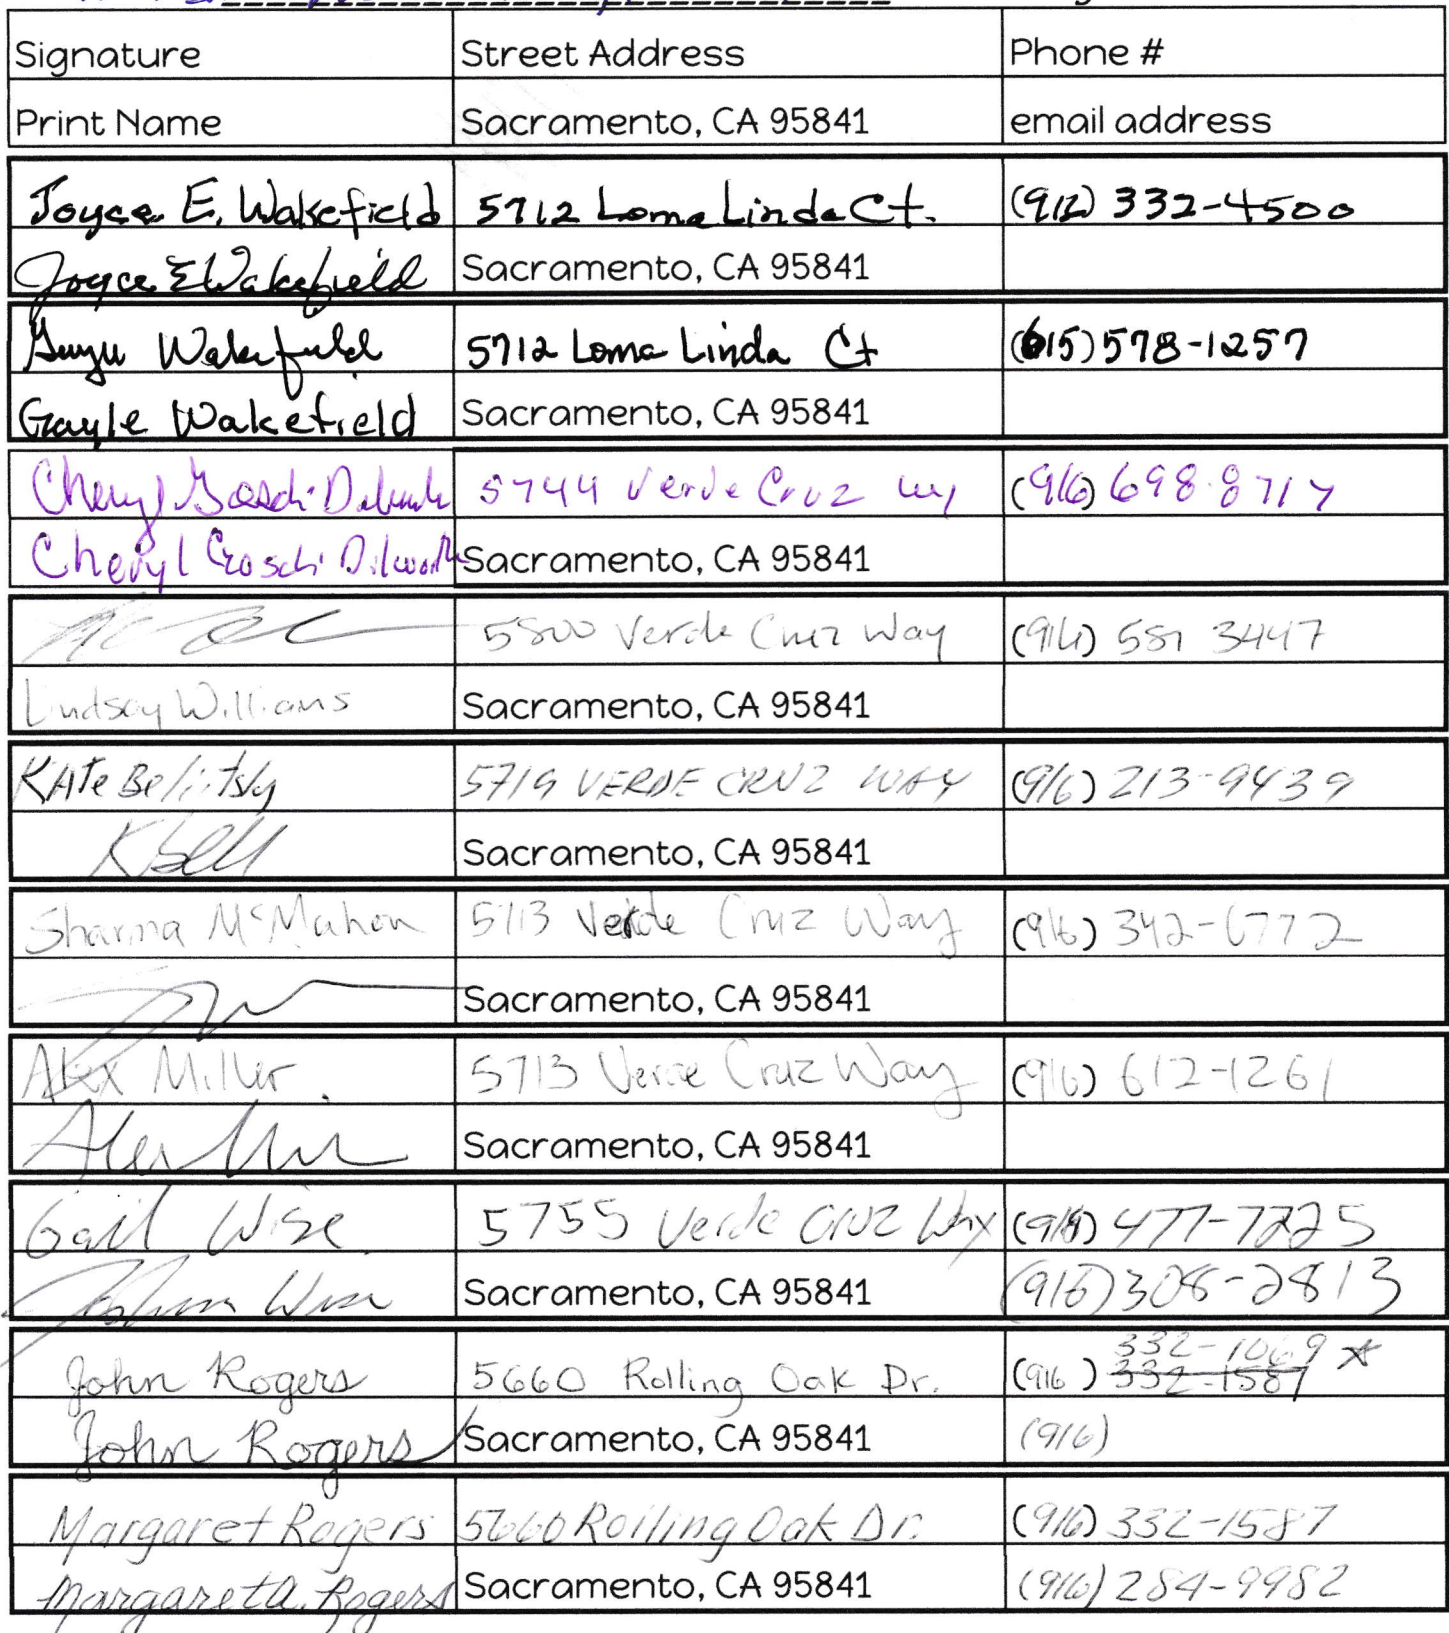 Signature Street Address Phone #
Print Name Sacramento, CA 95841 email address
Joyce E. Wakefield 5712 Loma Linda Ct. (912) 332-4500
Joyce E Wakefield Sacramento, CA 95841
Wakefield 5712 Loma Linda Ct (615) 578-1257
Gayle Wakefield Sacramento, CA 95841
Cheryl 5744 Verde Cruz wy (916) 698-8717
Cheryl Dilworth Sacramento, CA 95841
5800 Verde Cruz Way (916) 3447
Lindsay Williams Sacramento, CA 95841
KAte Belitsky 5719 VERDE CRUZ WAY (916) 213-9439
Sacramento, CA 95841
McMahon 5713 Verde Cruz Way (916) 342-6772
Sacramento, CA 95841
Alex Miller 5713 Verde Cruz Way (916) 612-1261
Alex Sacramento, CA 95841
Gail Wise 5755 Verde Cruz Way (916) 477-7225
Wise Sacramento, CA 95841 (916) 308-2813
332-1069 *
John Rogers 5660 Rolling Oak Dr. (916) 332-1587
John Rogers Sacramento, CA 95841 (916)
Margaret Rogers 5660 Rolling Oak Dr. (916) 332-1587
Margaret A. Rogers Sacramento, CA 95841 (916) 284-9982